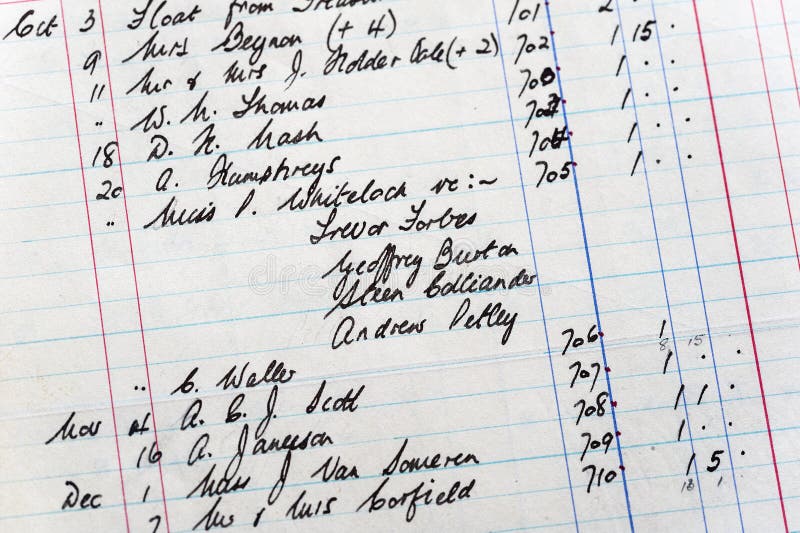 Oct 3 Float from 701 2
9 Mrs Beynon (+ 4) 702 1 15 ·
11 Mr & Mrs J. Holder Vale (+ 2) 703 1 · ·
" W. N. Thomas 1 · ·
18 D. N. Nash 704 1 · ·
20 A. Humphreys 705 1 · ·
" Miss P. Whitelock re:~
Trevor Forbes
Geoffrey Burton
Steen Colliander
Andrew Petley 706 1
8 15
" C. Waller 707 1 · ·
Nov A. C. J. Scott 708 1 1 ·
16 A. 709 1 · ·
Dec 1 J Van Someren 710 1 5 ·
7 Mr & Mrs Corfield 18 1